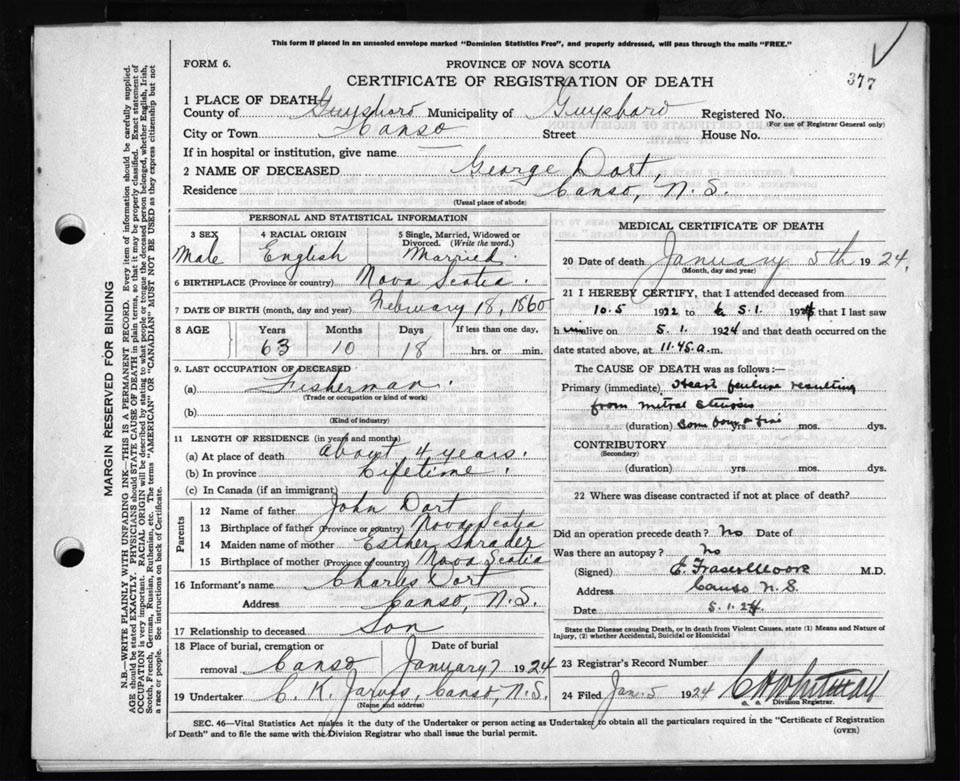 This form if placed in an unsealed envelope marked "Dominion Statistics Free", and properly addressed, will pass through the mails "FREE."
FORM 6.
PROVINCE OF NOVA SCOTIA
377
CERTIFICATE OF REGISTRATION OF DEATH
1 PLACE OF DEATH
County of Guysboro Municipality of Guysboro Registered No.
(For use of Registrar General only)
City or Town Canso Street House No.
If in hospital or institution, give name —
2 NAME OF DECEASED George Dort,
Residence Canso, N.S.
(Usual place of abode)
PERSONAL AND STATISTICAL INFORMATION
3 SEX 4 RACIAL ORIGIN 5 Single, Married, Widowed or Divorced. (Write the word.)
Male English Married.
6 BIRTHPLACE (Province or country) Nova Scotia.
7 DATE OF BIRTH (month, day and year) February 18, 1860
8 AGE Years Months Days If less than one day,
63 10 18 hrs. or min.
9. LAST OCCUPATION OF DECEASED
(a) Fisherman.
(Trade or occupation or kind of work)
(b)
(Kind of industry)
11 LENGTH OF RESIDENCE (in years and months)
(a) At place of death about 4 years.
(b) In province Lifetime.
(c) In Canada (if an immigrant)
Parents
12 Name of father John Dort
13 Birthplace of father (Province or country) Nova Scotia
14 Maiden name of mother Esther Shrader
15 Birthplace of mother (Province or country) Nova Scotia
16 Informant's name Charles Dort
Address Canso, N.S.
17 Relationship to deceased Son
18 Place of burial, cremation or
removal Canso January 7 1924
19 Undertaker C. K. Jarvis, Canso, N.S.
(Name and address)
MEDICAL CERTIFICATE OF DEATH
20 Date of death January 5th 1924.
(Month, day and year)
21 I HEREBY CERTIFY, that I attended deceased from
10.5 1922 to 5.1. 1924 that I last saw
h im alive on 5.1. 1924 and that death occurred on
date stated above, at 11.45 a.m.
The CAUSE OF DEATH was as follows:—
Primary (immediate) Heart failure resulting
from mitral stenosis
(duration) some yrs. mos. dys.
CONTRIBUTORY
(Secondary)
(duration) yrs. mos. dys.
22 Where was disease contracted if not at place of death?
Did an operation precede death? No Date of
Was there an autopsy? No
(Signed) E. Fraser Moore M.D.
Address Canso N.S.
Date 5.1.24
State the Disease causing Death, or in death from Violent Causes, state (1) Means and Nature of
Injury, (2) whether Accidental, Suicidal or Homicidal
23 Registrar's Record Number
24 Filed Jan. 5 1924 C. H. Whitman
Division Registrar.
SEC. 46—Vital Statistics Act makes it the duty of the Undertaker or person acting as Undertaker to obtain all the particulars required in the "Certificate of Registration
of Death" and to file the same with the Division Registrar who shall issue the burial permit.
(OVER)
MARGIN RESERVED FOR BINDING
N.B.—WRITE PLAINLY WITH UNFADING INK—THIS IS A PERMANENT RECORD. Every item of information should be carefully supplied.
AGE should be stated EXACTLY. PHYSICIANS should STATE CAUSE OF DEATH in plain terms, so that it may be properly classified. Exact statement of
OCCUPATION is very important. RACIAL ORIGIN will be described by stating to what people or tongue the deceased person belonged, whether English, Irish,
Scotch, French, German, Russian, Ruthenian, etc. The terms "AMERICAN" or "CANADIAN" MUST NOT BE USED as they express citizenship but not
a race or people. See instructions on back of Certificate.